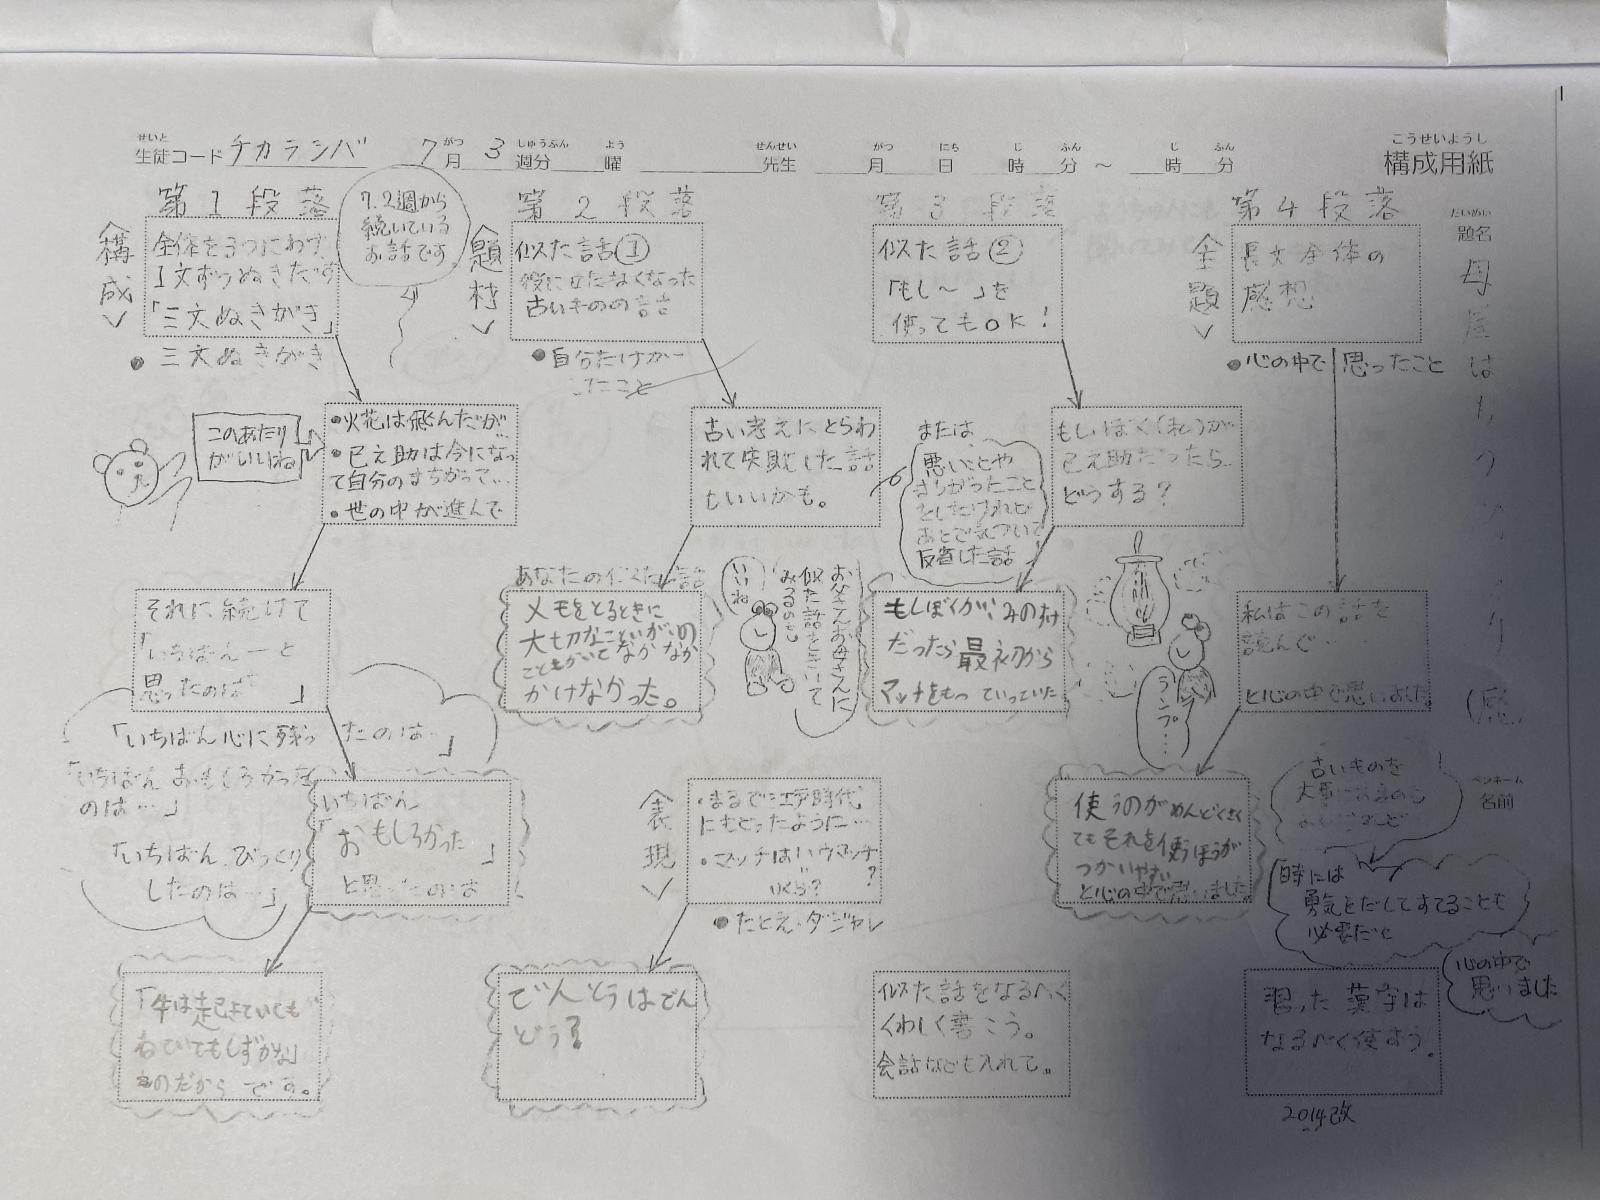 せいと
生徒コード チカラシバ 7月 3週分 曜 先生 月 日 時 分 ～ 時 分
がつ しゅうぶん よう せんせい がつ にち じ ふん じ ふん
こうせいようし
構成用紙
だいめい
題名
母屋は
ペンネーム
名前
第1段落
＜構成＞
全体を3つにわけ
1文ずつぬきだす
「三文ぬきがき」
7.2週から
続いている
お話です
● 三文ぬきがき
このあたり
がいいね
・火花は飛んだが…
・巳之助は今になっ
て自分のまちがって…
・世の中が進んで
それに続けて
「いちばん一と
思ったのは 」
「いちばん心に残ったのは…」
「いちばんおもしろかった
のは…」
「いちばんびっくり
したのは…」
いちばん
「おもしろかった」
と思ったのは
「牛は起きていても
ねていてもしずかな」
ものだから です。
第2段落
＜題材＞
似た話①
役に立たなくなった
古いものの話
● 自分だけが一
したこと
古い考えにとらわ
れて失敗した話
もいいかも。
または、
悪いことや
まちがったこと
をしたけれど
あとで気づいて
反省した話
あなたの似た話
メモをとるときに
大切なこといがいの
こともかいてなかなか
かけなかった。
いいね
お父さんお母さんに
似た話をきいて
みるのも
＜表現＞
・まるで江戸時代
にもどったように…
・マッチはハウマッチ
いくら?
● たとえ・ダジャレ
でんとうはでん
どう?
第3段落
似た話②
「もし〜」を
使ってもOK!
もしぼく(私)が
巳之助だったら
どうする?
もしぼくが、みのすけ
だったら最初から
マッチをもっていっていた
ランプ…
似た話をなるべく
くわしく書こう。
会話なども入れて。
第4段落
＜主題＞
長文全体の
感想
● 心の中で思ったこと
私はこの話を
読んで……
と心の中で思いました。
使うのがめんどくさく
てもそれを使うほうが
つかいやすい
と心の中で思いました。
古いものを
時には
勇気をだしてすてることも
必要だと
心の中で
思いました
習った漢字は
なるべく使おう。
2014改